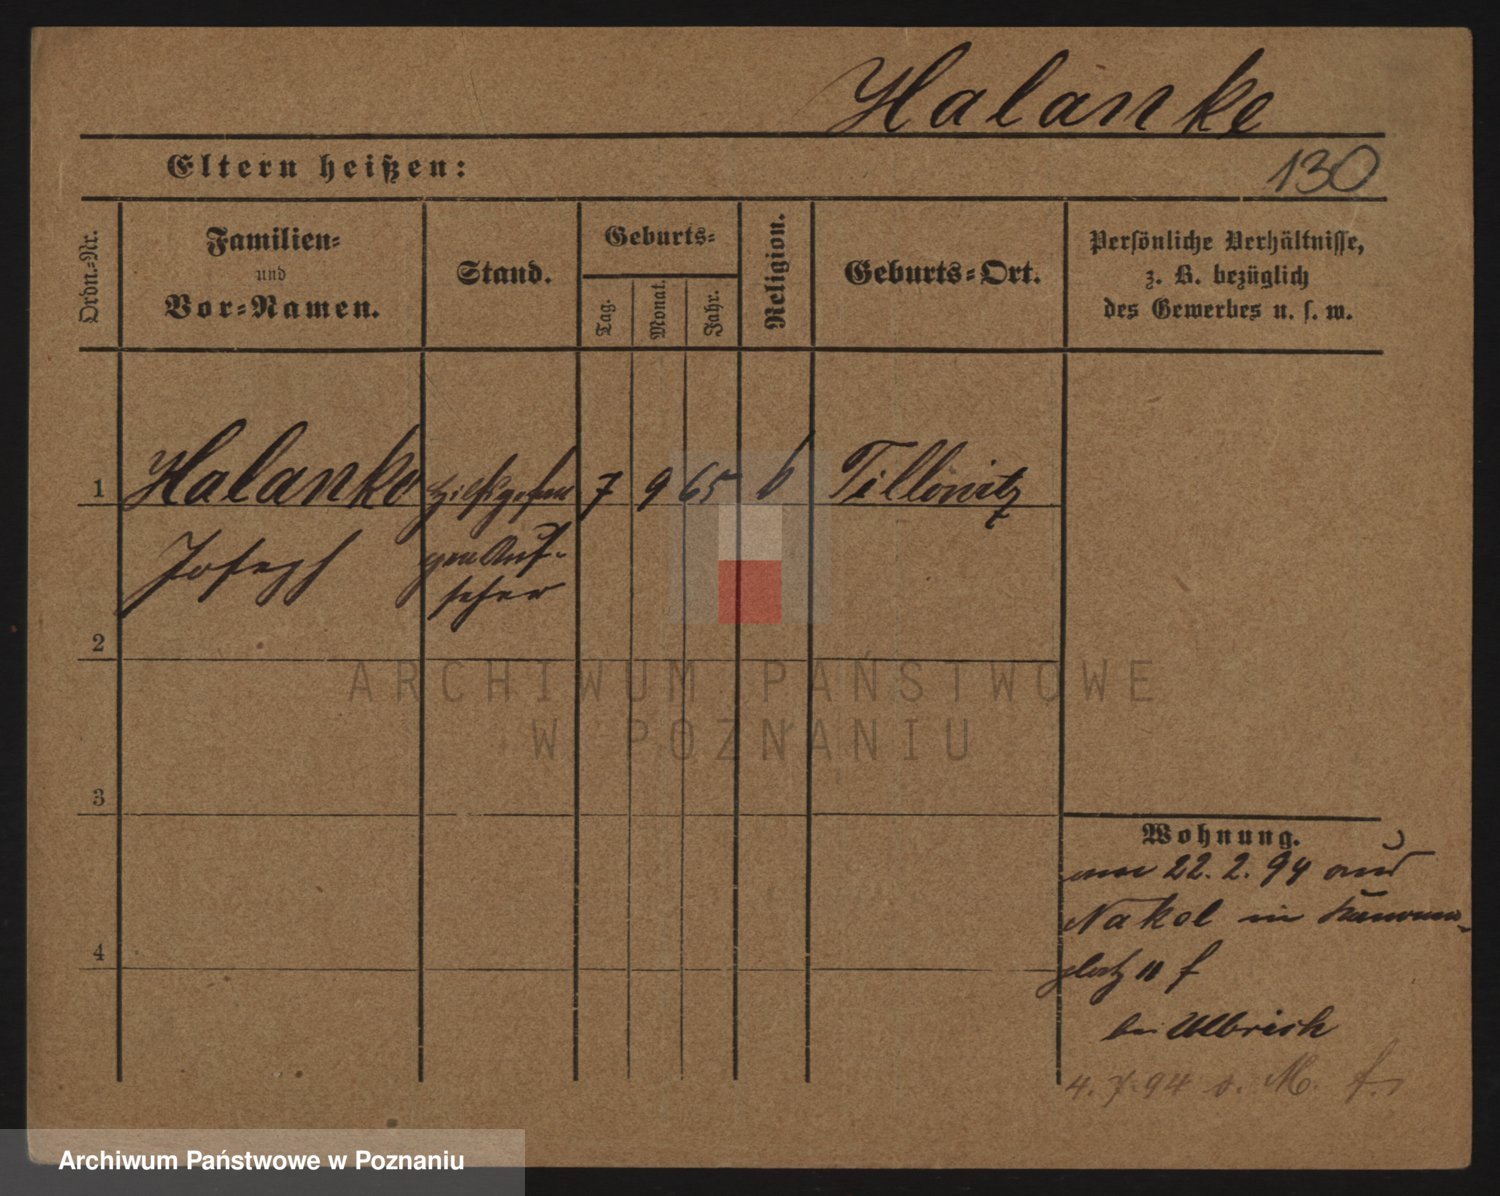 Halanke
Eltern heißen:
130
Ordn.-Nr.
Familien-
und
Vor-Namen.
Stand.
Geburts-
Tag.
Monat.
Jahr.
Religion.
Geburts-Ort.
Persönliche Verhältnisse,
z. B. bezüglich
des Gewerbes u. s. w.
1 Halanke Hilfsgefan 7 9 65 k Tillowitz
Joseph
gen Auf-
seher
2
ARCHIWUM PAŃSTWOWE
W POZNANIU
3
Wohnung.
22. 2. 94 aus
Nakel in
platz 11 f
bei Ulbrich
4
4. 7. 94 M.
Archiwum Państwowe w Poznaniu